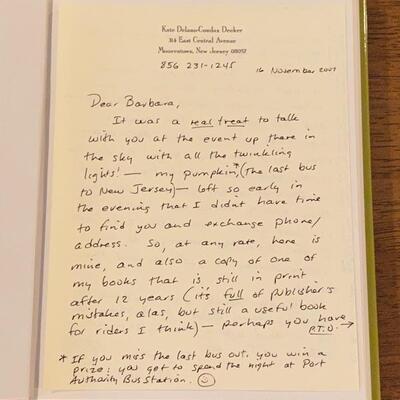 Kate Delano-Condax Decker
314 East Central Avenue
Moorestown, New Jersey 08057
856 231-1245
16 November 2007
Dear Barbara,
It was a real treat to talk
with you at the event up there in
the sky with all the twinkling
lights! — my pumpkin* (the last bus
to New Jersey) — left so early in
the evening that I didnt have time
to find you and exchange phone/
address. So, at any rate, here is
mine, and also a copy of one of
my books that is still in print
after 12 years (it's full of publisher's
mistakes, alas, but still a useful book
for riders I think) — perhaps you have
P.T.O. →
* If you miss the last bus out, you win a
prize: you get to spend the night at Port
Authority Bus Station. ☺